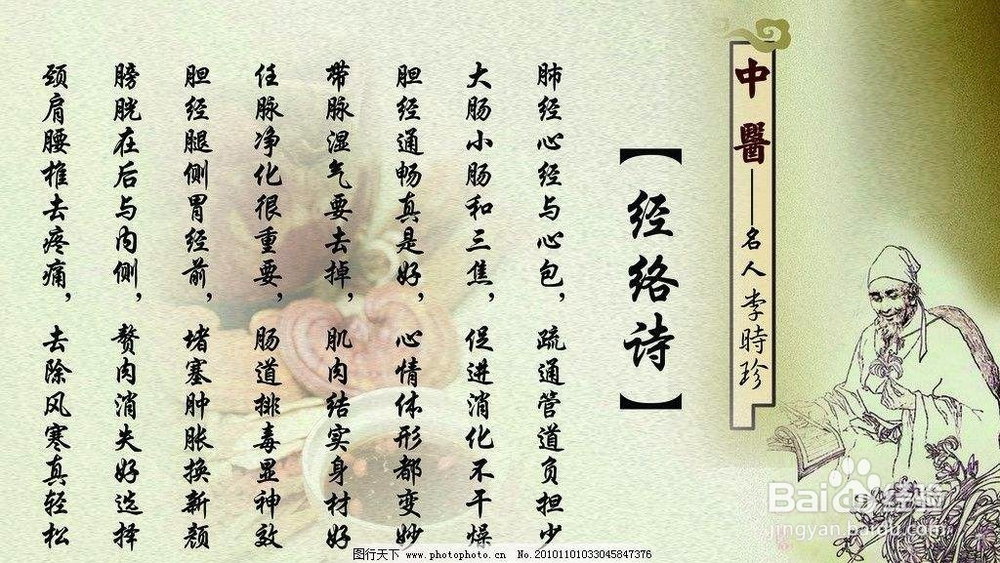 中醫——名人李時珍
【经络诗】
肺经心经与心包，疏通管道负担少
大肠小肠和三焦，促进消化不干燥
胆经通畅真是好，心情体形都变妙
带脉湿气要去掉，肌肉结实身材好
任脉净化很重要，肠道排毒显神效
胆经腿侧胃经前，堵塞肿胀换新颜
膀胱在后与内侧，赘肉消失好选择
颈肩腰椎去疼痛，去除风寒真轻松
Baidu经验
jingyan.baidu.com
图行天下 www.photophoto.cn No.20101101033045847376